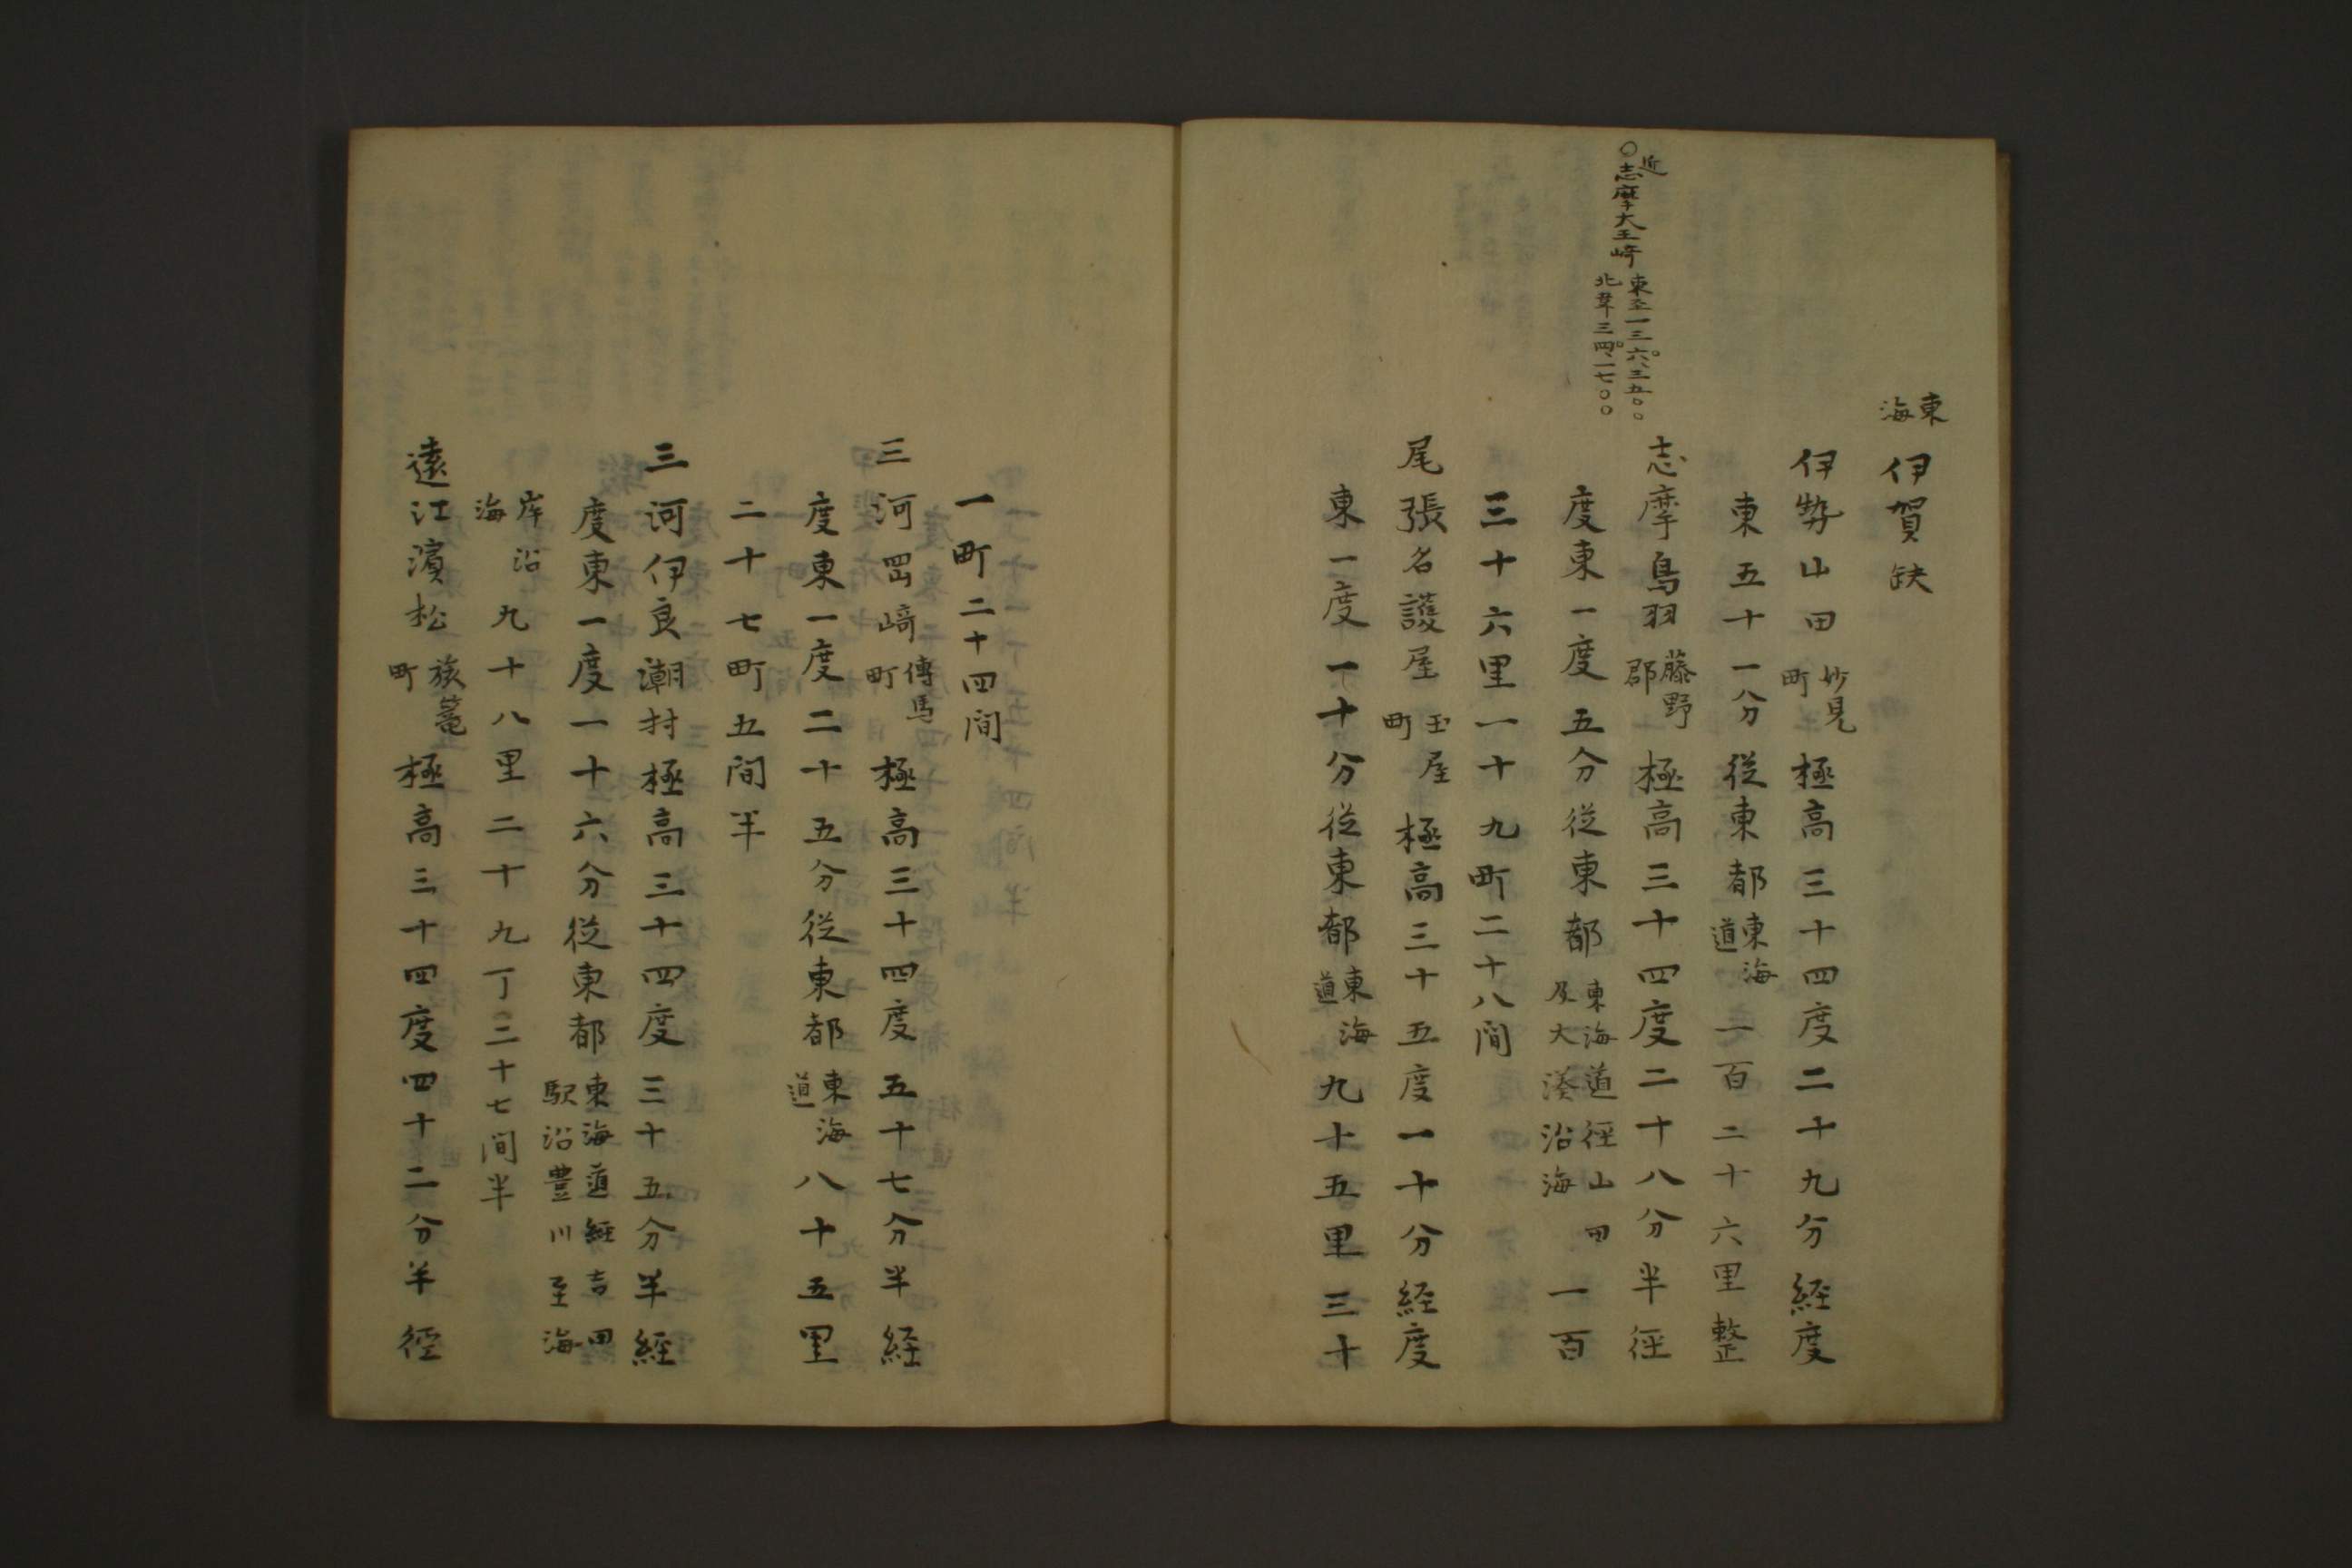 東海
伊賀缺
伊勢山田妙見町極高三十四度二十九分経度
東五十一分従東都東海道一百二十六里整
近
○志摩大王崎東至一三六°三五、〇〇北葦三四°一七、〇〇
志摩鳥羽藤野郡極高三十四度二十八分半径
度東一度五分従東都東海道径山田及大湊沿海一百
三十六里一十九町二十八間
尾張名護屋玉屋町極高三十五度一十分経度
東一度一十分従東都東海道九十五里三十
一町二十四間
三河岡﨑傳馬町極高三十四度五十七分半経
度東一度二十五分従東都東海道八十五里
二十七町五間半
三河伊良潮村極高三十四度三十五分半経
度東一度一十六分従東都東海道経吉田駅沿豊川至海
岸沿海九十八里二十九丁三十七間半
遠江濱松旅篭町極高三十四度四十二分半径